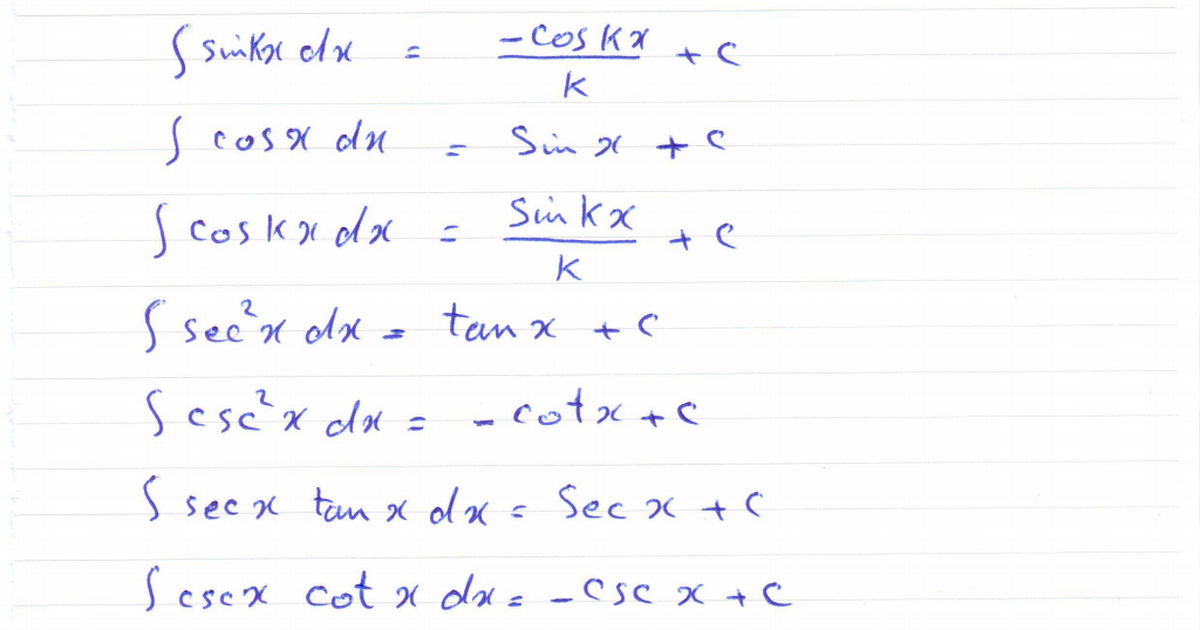 ∫ sin kx dx = -cos kx / k + c
∫ cos x dx = Sin x + c
∫ cos kx dx = Sin kx / k + c
∫ sec²x dx = tan x + c
∫ csc²x dx = - cot x + c
∫ sec x tan x dx = Sec x + c
∫ csc x cot x dx = - csc x + c